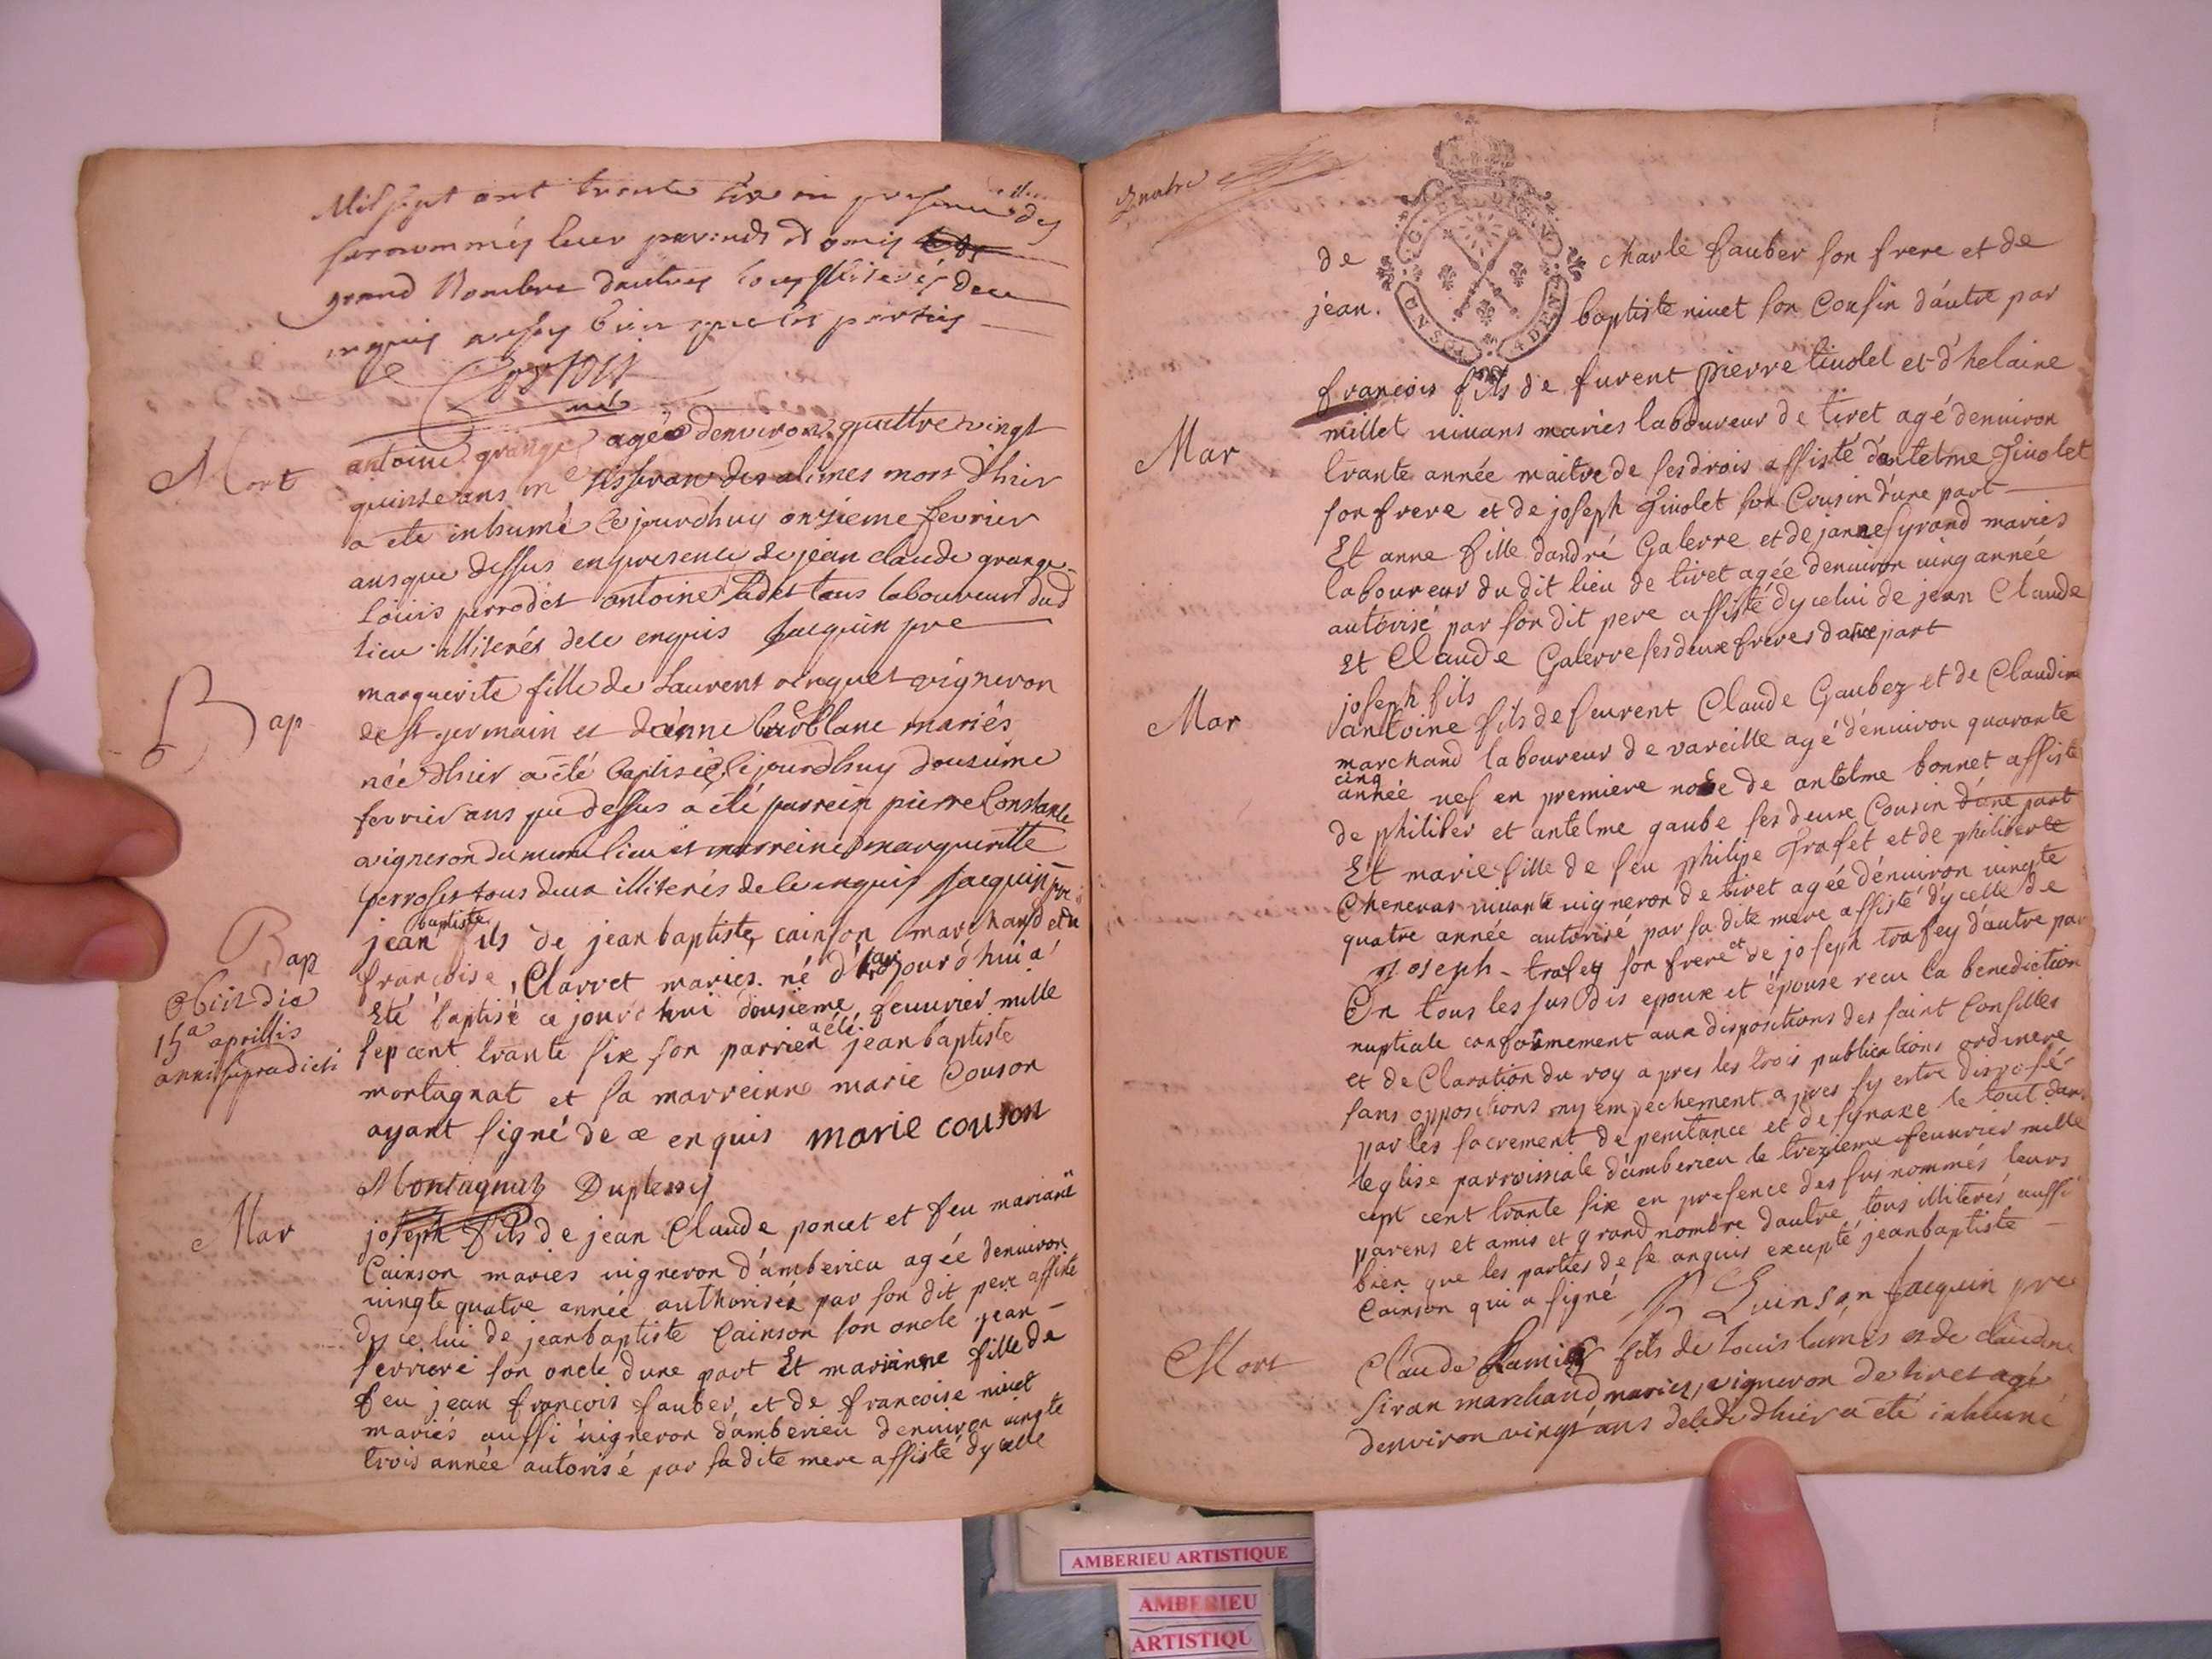 Mil sept cent trente six en presence des
surnommés leur parends et amis
grand Nombre dautres tous illiterés de ce
enquis aussy bien que les parties
Mort
antoine grange agée denviron quattre vingt
quinse ans tisseran des alimes mort d'hier
a ete inhumé ce jourdhuy onzieme fevrier
ans que dessus en presence de jean claude grange
Louis perrodet antoine tous laboureurs dud
lieu illiterés de ce enquis Jacquin pre
Bap
marguerite fille de Laurent vigneron
de st germain et d'anne barblanc mariés
née d'hier a été baptisée ce jourdhuy dousieme
fevrier ans que dessus a été parrein pierre Constante
vigneron du meme lieu et marreine marguerite
perroset tous deux illiterés de ce enquis Jacquin pre
Bap
Obiit die
15a aprillis
anni supradicti
baptiste
jean fils de jean baptiste cainson marchand et de
françoise Clarret maries né d'aujourd'hui a
Eté baptisé ce jourd'hui dousieme feuvrier mille
sep cent trante six son parrien a été jean baptiste
montagnat et sa marreinne marie Couson
ayant signé de ce enquis marie couson
Montagnat Duplessy
Mar
joseph fils de jean Claude poncet et feu mariane
Cainson mariés vigneron d'amberieu agée denviron
vingte quatre année authorisée par son dit pere assisté
dy ce lui de jeanbaptiste Cainson son oncle jean
ferriere son oncle dune part Et marianne fille de
feu jean françois fauber et de francoise nivet
mariés aussi vigneron d'amberieu denviron vingte
trois année autorisé par sa dite mere assisté dy celle
de charle fauber son frere et de
jean baptiste nivet son Cousin d'autre par
Mar
françois fils de furent pierre tinolet et d'helaine
millet vivans mariés laboureur de tiret agé denviron
trante année maitre de ses drois assisté d'antelme Tinolet
son frere et de joseph Tinolet son Cousin d'une part
Et anne fille dandré Galerre et de janne syrand mariés
laboureur du dit lieu de tiret agée denviron ving année
autorisé par son dit pere assisté dy celui de jean Claude
Et Claude Galerre ses deux freres dautre part
Mar
joseph fils
antoine fils de feurent Claude Gaubez et de Claudine
marchand laboureur de vareille agé d'environ quarante
cinq
année vef en premiere nose de antelme bonnet assisté
de philiber et antelme gaube ses deux Cousin d'une part
Et marie fille de feu philipe Trafet et de philiberte
Chenevas vivante vigneron de tiret agée d'environ vingte
quatre année autorisé par sa dite mere assisté d'ycelle de
joseph trafey son frere et de joseph trafey d'autre par
On tous les sus dis epoux et épouse recu la benediction
nuptiale conformement aux dispositions des saint Consilles
et de Claration du roy apres les trois publications ordinere
sans oppositions ny empechement apres sy estre disposé
par les sacrement de penitance et de synaxe le tout dans
leglise parroissiale d'amberieu le trezieme feuvrier mille
cept cent trante six en presence des sus nommés leurs
parens et amis et grand nombre dautre tous illiterés aussi
bien que les parties de se anquis excepté jeanbaptiste
Cainson qui a signé Quinson Jacquin pre
Mort
Claude Lumies fils de Louis lumés et de claudine
siran marchand mariés vigneron de tiret agé
denviron vingt ans decedé dhier a eté inhumé
AMBERIEU ARTISTIQUE
AMBERIEU
ARTISTIQU